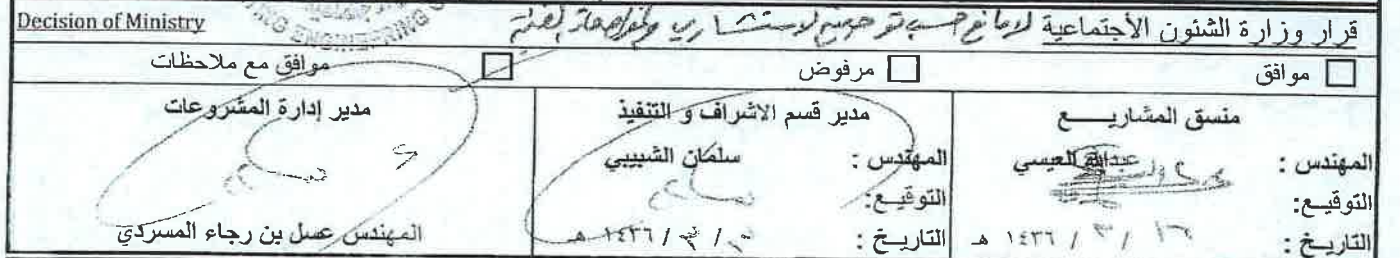 Decision of Ministry
قرار وزارة الشئون الأجتماعية لا مانع حسب توجيه الاستشاري
موافق
مرفوض
موافق مع ملاحظات
منسق المشاريـــــع
مدير قسم الاشراف و التنفيذ
مدير إدارة المشروعات
المهندس : عبدالله العيسي
المهندس : سلمان الشبيبي
التوقيـع:
التوقيـع:
التاريـخ : ١٦ / ٣ / ١٤٣٦ هـ
التاريـخ : / ٣ / ١٤٣٦ هـ
المهندس عسل بن رجاء المسردي